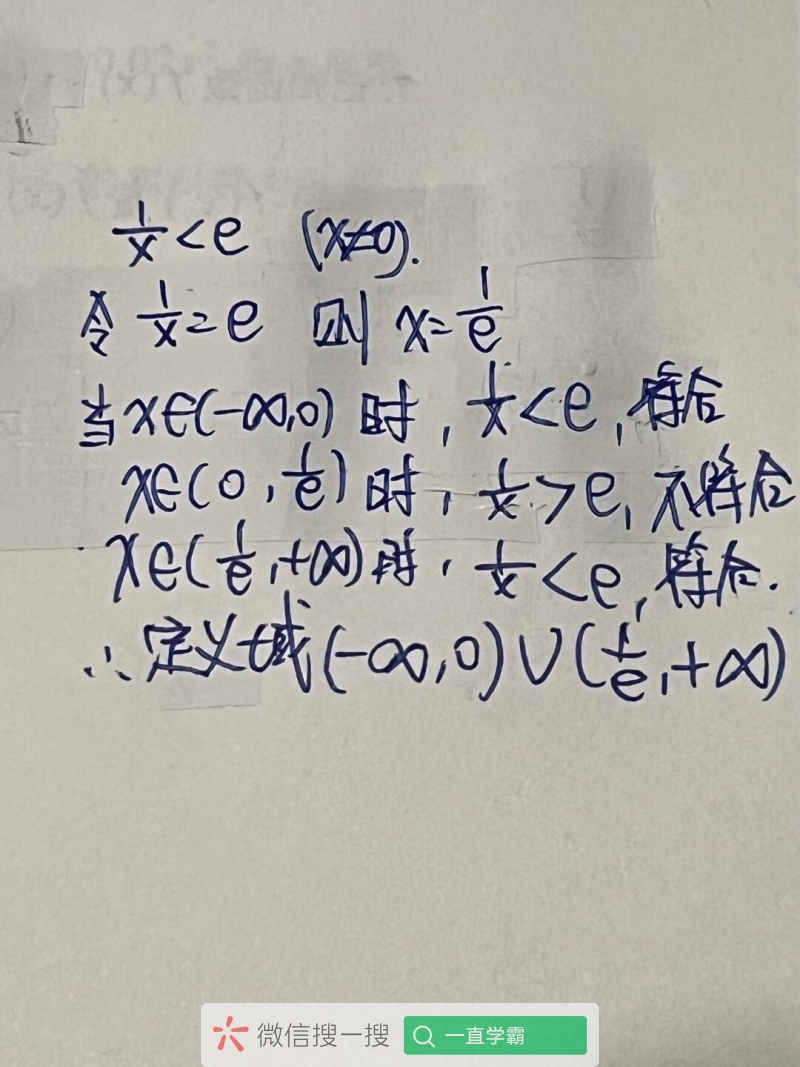 1/x < e (x≠0).
令 1/x = e 则 x = 1/e
当 x∈(-∞,0) 时, 1/x < e, 符合
x∈(0, 1/e) 时, 1/x > e, 不符合
x∈(1/e, +∞) 时, 1/x < e, 符合.
∴ 定义域 (-∞,0)∪(1/e, +∞)
微信搜一搜 一直学霸